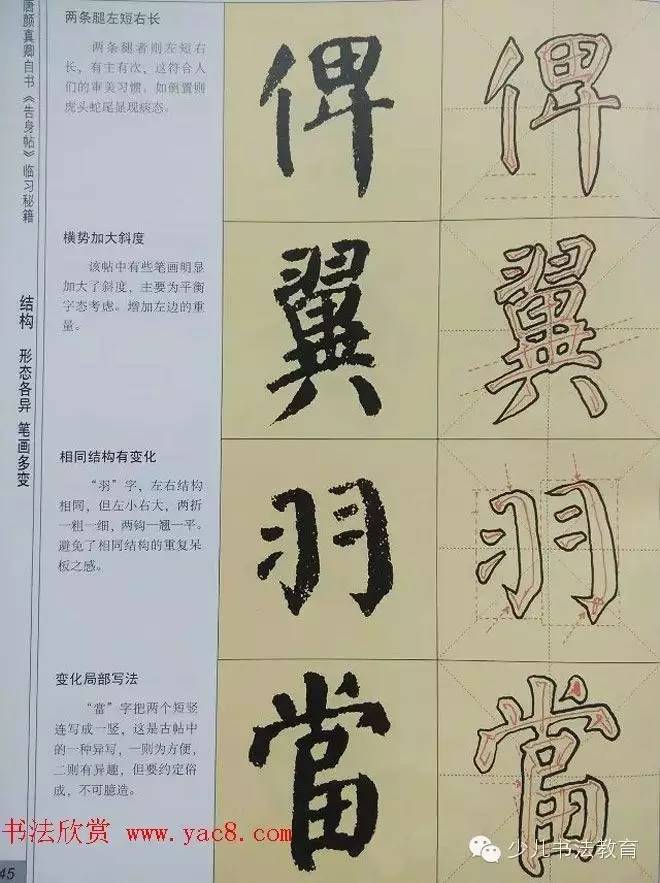 唐颜真卿自书《告身帖》临习秘籍
结构 形态各异 笔画多变
两条腿左短右长
两条腿者则左短右
长，有主有次，这符合人
们的审美习惯。如倒置则
虎头蛇尾显现病态。
俾
俾
横势加大斜度
该帖中有些笔画明显
加大了斜度，主要为平衡
字态考虑。增加左边的重
量。
翼
翼
相同结构有变化
“羽”字，左右结构
相同，但左小右大，两折
一粗一细，两钩一翘一平。
避免了相同结构的重复呆
板之感。
羽
羽
变化局部写法
“當”字把两个短竖
连写成一竖，这是古帖中
的一种异写，一则为方便，
二则有异趣，但要约定俗
成，不可臆造。
當
當
书法欣赏 www.yac8.com
少儿书法教育
45